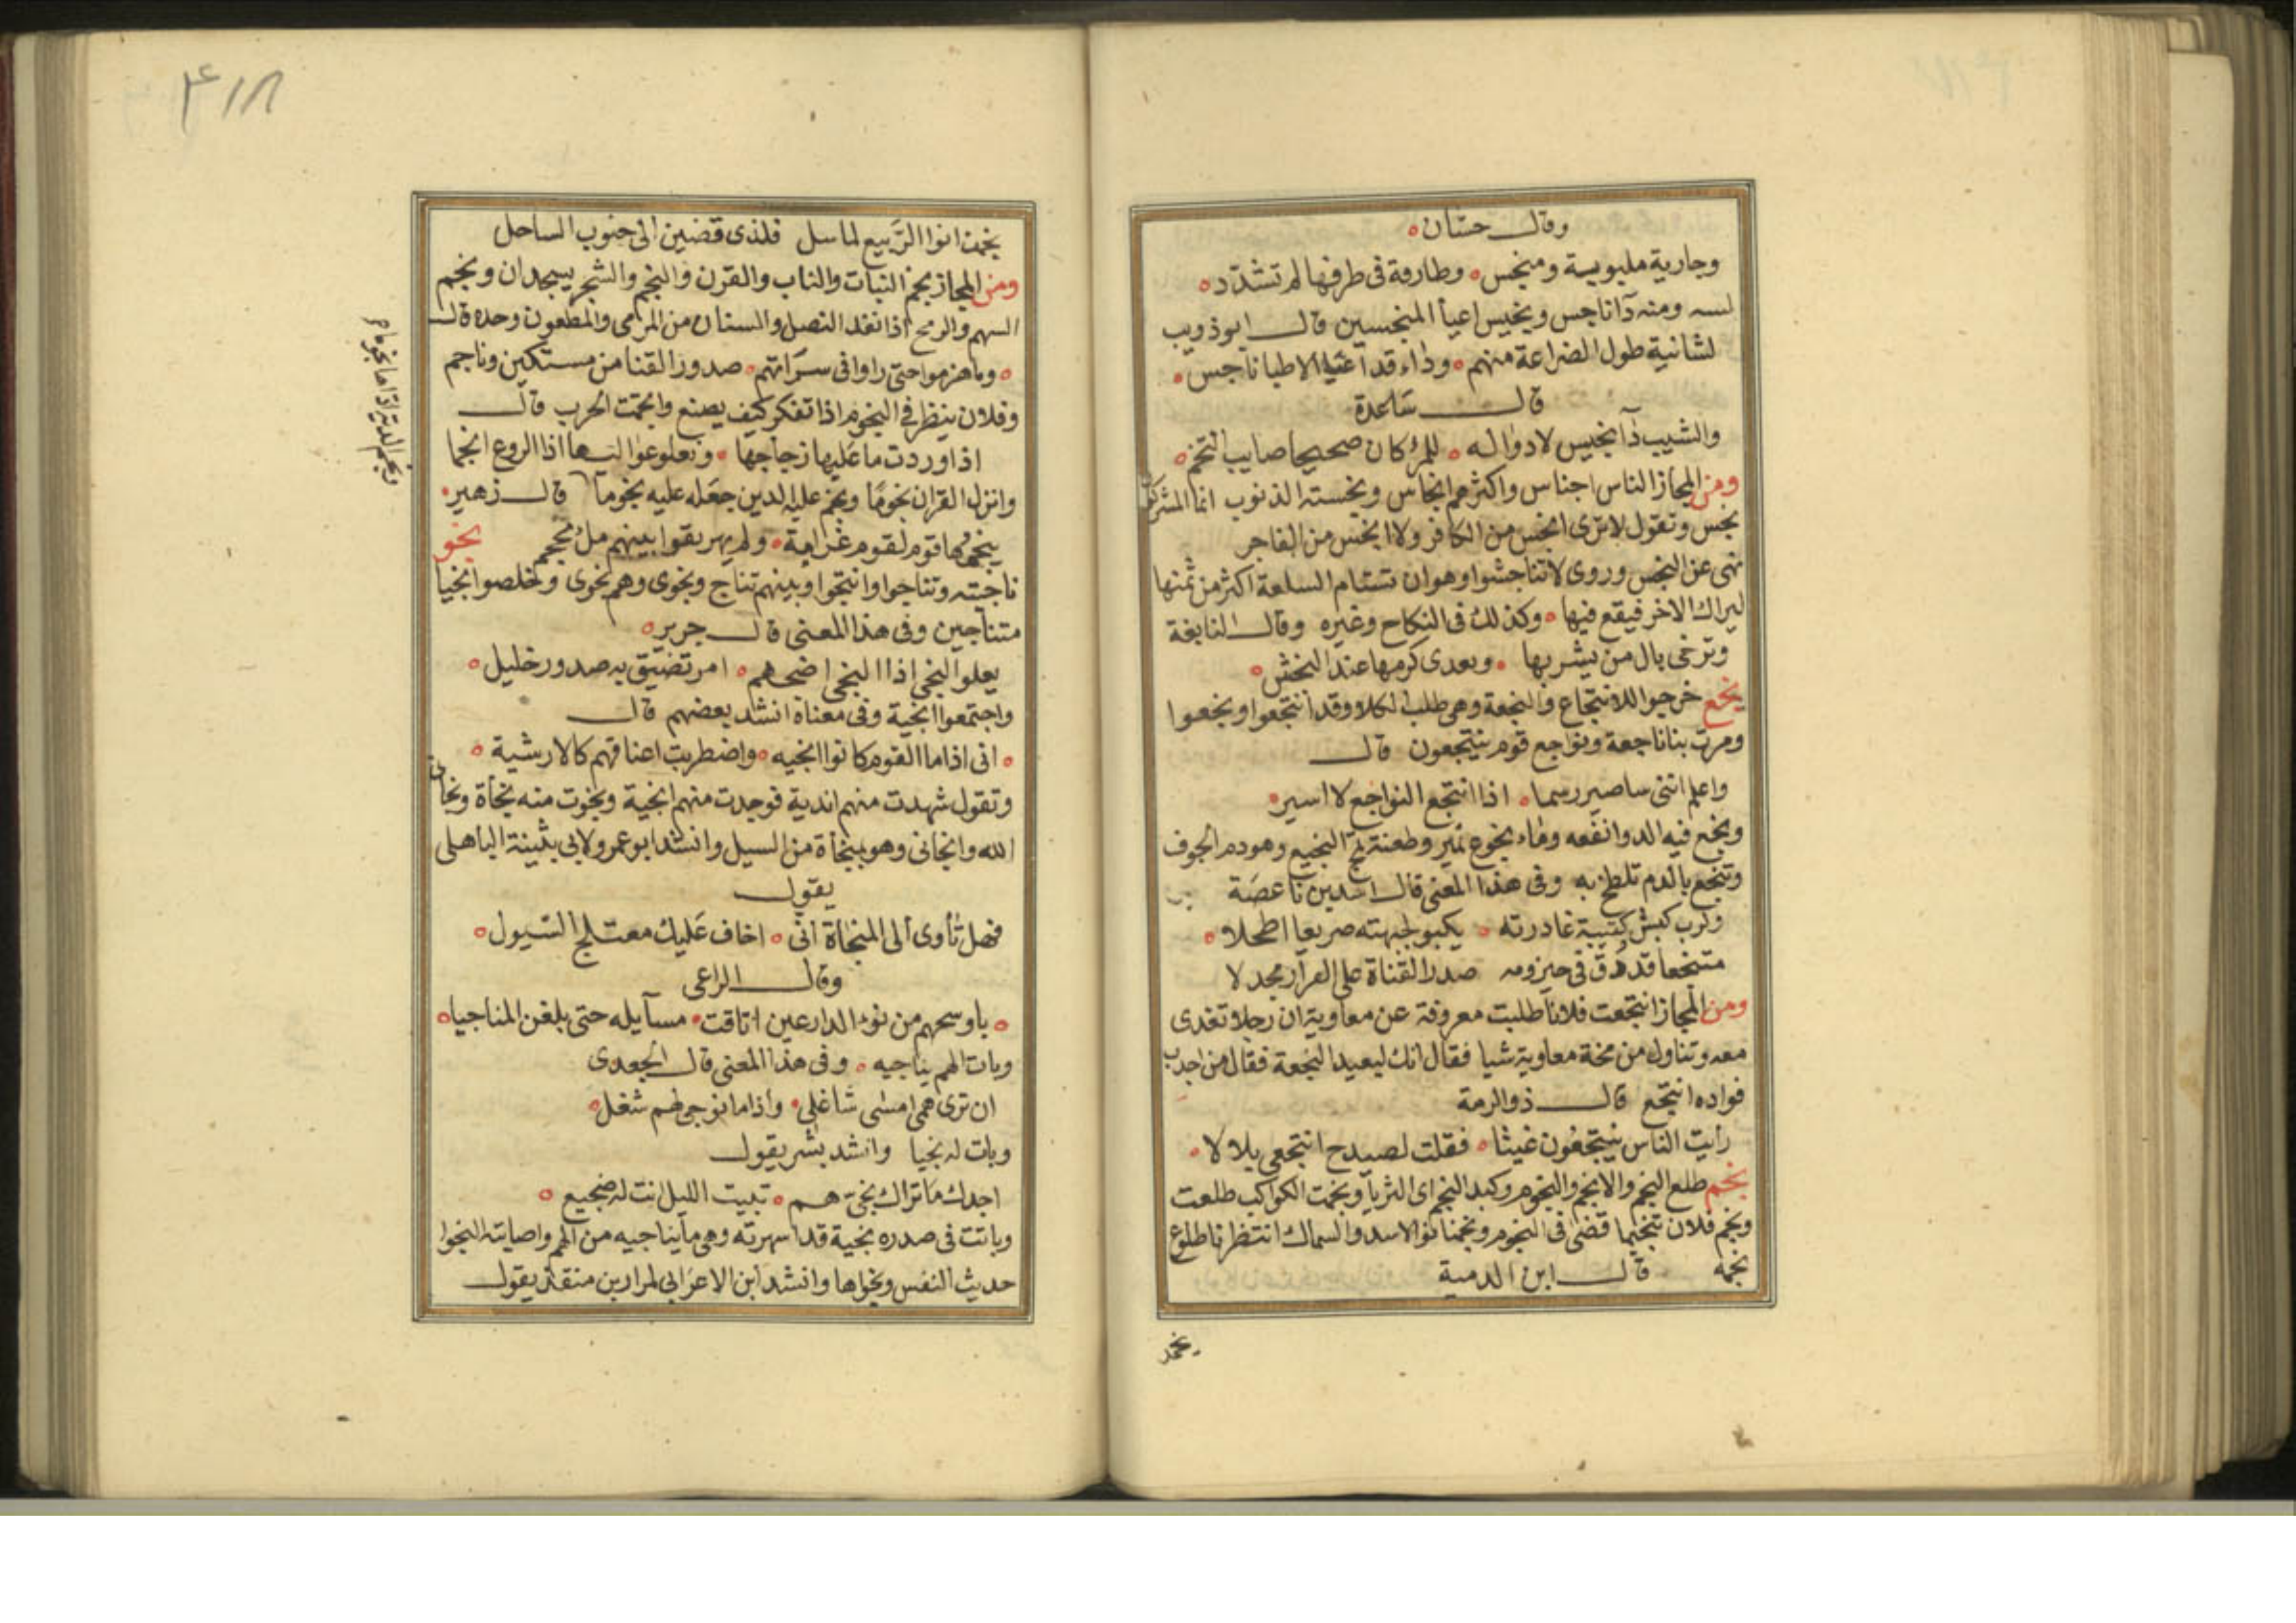 وقال حسّان
وجارية ملبوبة ومنجس وطارقة فى طرفها لم تشدّد
ومنه دآ ناجس ونجيس اعيا المنجسين قال ابو ذويب
لشانية طول الضراعة منهم ودا، قد اعيا الاطبا ناجس
قال ساعدة
والشيب دآ نجيس لا دوا له للمرء كان صحيحا صايب التخم
ومن المجاز الناس اجناس واكثرهم انجاس ونجسته الذنوب انما المشركون
نجس وتقول لا ترى انجس من الكافر ولا انجس من الفاجر
نهى عن النجس وروى لا تناجشوا وهو ان تستام السلعة اكثر من ثمنها
ليراك الاخر فيقع فيها وكذلك فى النكاح وغيره وقال النابغة
وترخى بال من يشربها ويعدى كرمها عند النخش
نجع خرجوا للانتجاع والنجعة وهى طلب الكلا وقد انتجعوا ونجعوا
ومرت بنا ناجعة ونواجع قوم ينتجعون قال
واعلم اننى ساصير رسما اذا انتجع النواجع لا اسير
ونجع فيه الدوا نفعه وماء نجوع نمير وطعنة تمج النجيع وهو دم الجوف
وتنجع بالدم تلطخ به وفى هذا المعنى قال اسد بن ناعصة
ولرب كبش كتيبة غادرته يكبو لجبهته صريعا اطحلا
متنجعا قد دُق فى حيزومه صدر القناة على القرار مجدلا
ومن المجاز انتجعت فلانا طلبت معروفة عن معاوية ان رجلا تغدى
معه وتناول من مخة معاوية شيا فقال انك لبعيد النجعة فقال من اجدب
فواده انتجع قال ذو الرمة
رايت الناس ينتجعون غيثا فقلت لصيدح انتجعى بلالا
نجم طلع النجم والانجم والنجوم وكبد النجم اى الثريا ونجمت الكواكب طلعت
ونجم فلان تنجيما قضى فى النجوم ونجمنا نوا الاسد والسماك انتظرنا طلوع
نجمه قال ابن الدمية
٤١٨
انوا الربيع لما سل فلذى قضين الى جنوب الساحل
ومن المجاز نجم النبات والناب والقرن والنجم والشجر يسجدان ونجم
السهم والرمح اذا نفد النصل والسنان من المرمى والمطعون وحده قال
وما هزموا حتى راوا فى سراتهم صدور القنا من مستكين وناجم
وفلان ينظر فى النجوم اذا تفكر كيف يصنع وانجمت الحرب قال
اذا وردت ما عليها زجاجها وتعلو عواليها اذا الروع انجما
وانزل القران نجومًا ونجم عليه الدين جعله عليه نجوما قال زهير
ينجمها قوم لقوم غرامة ولم يهريقوا بينهم مل محجم نجو
ناجيته وتناجوا وانتجوا وبينهم تناج ونجوى وهم نجوى وخلصوا نجيا
متناجين وفى هذا المعنى قال جرير
يعلو النجى اذا النجى اضجهم امر تضيق به صدور خليل
واجتمعوا انجية وفى معناه انشد بعضهم قال
انى اذا ما القوم كانوا انجيه واضطربت اعناقهم كالارشية
وتقول شهدت منهم اندية فوجدت منهم انجية ونجوت منه نجاة ونجانى
الله وانجانى وهو بمنجاة من السيل وانشد ابو عمرو لابى بثينة الباهلى
يقول
فهل تأوى الى المنجاة انّى اخاف عليك معتلج السيول
وقال الراعى
باوسحهم من نوء الدارعين اتاقت مسآيله حتى بلغن المناجيا
وبات الهم يناجيه وفى هذا المعنى قال الجعدى
ان ترى همى امسى شاغلى واذا ما نوجى الهم شغل
وبات له نجيا وانشد بشر يقول
اجدك ما تراك نجىّ هم تبيت الليل انت له ضجيع
وباتت فى صدره نجية قد اسهرته وهى ما يناجيه من الهم واصابته النجوا
حديث النفس ونجواها وانشد ابن الاعرابى لمرار بن منقذ يقول